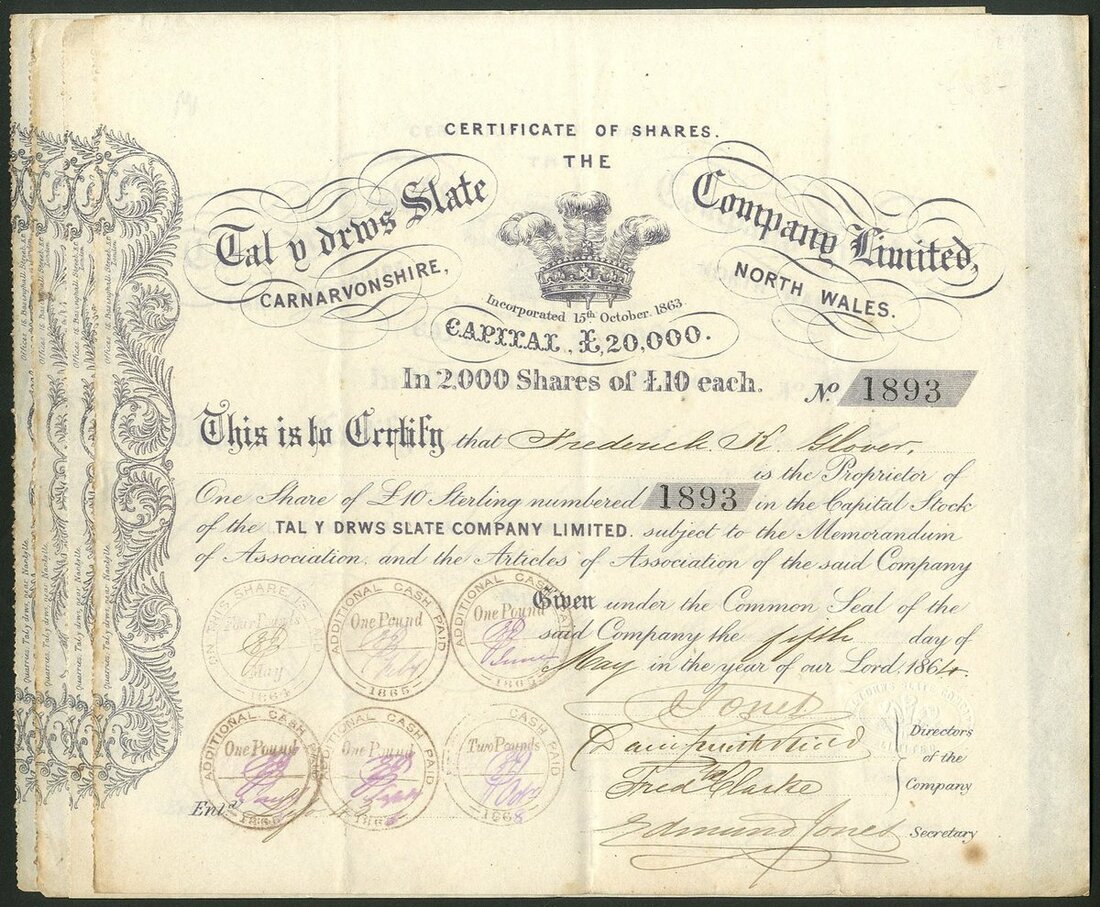 CERTIFICATE OF SHARES.
THE
Tal y drws Slate Company Limited,
CARNARVONSHIRE, NORTH WALES.
Incorporated 15th October. 1863.
CAPITAL, £20,000.
In 2,000 Shares of £10 each. No. 1893
This is to Certify that Frederick. K. Glover,
is the Proprietor of
One Share of £10 Sterling numbered 1893 in the Capital Stock
of the TAL Y DRWS SLATE COMPANY LIMITED. subject to the Memorandum
of Association, and the Articles of Association of the said Company
Given under the Common Seal of the
said Company the fifth day of
May in the year of our Lord, 1864.
ON THIS SHARE IS PAID
Four Pounds
May
1864
ADDITIONAL CASH PAID
One Pound
1865
ADDITIONAL CASH PAID
One Pound
June
1865
ADDITIONAL CASH PAID
One Pound
ADDITIONAL CASH PAID
One Pound
CASH PAID
Two Pounds
1868
Jones
Fred Clarke
Directors
of the
Company
Edmund Jones Secretary
Entd
Offices 16, Basinghall Street,
London.
Quarries, Tal y drws, near Nantlle.